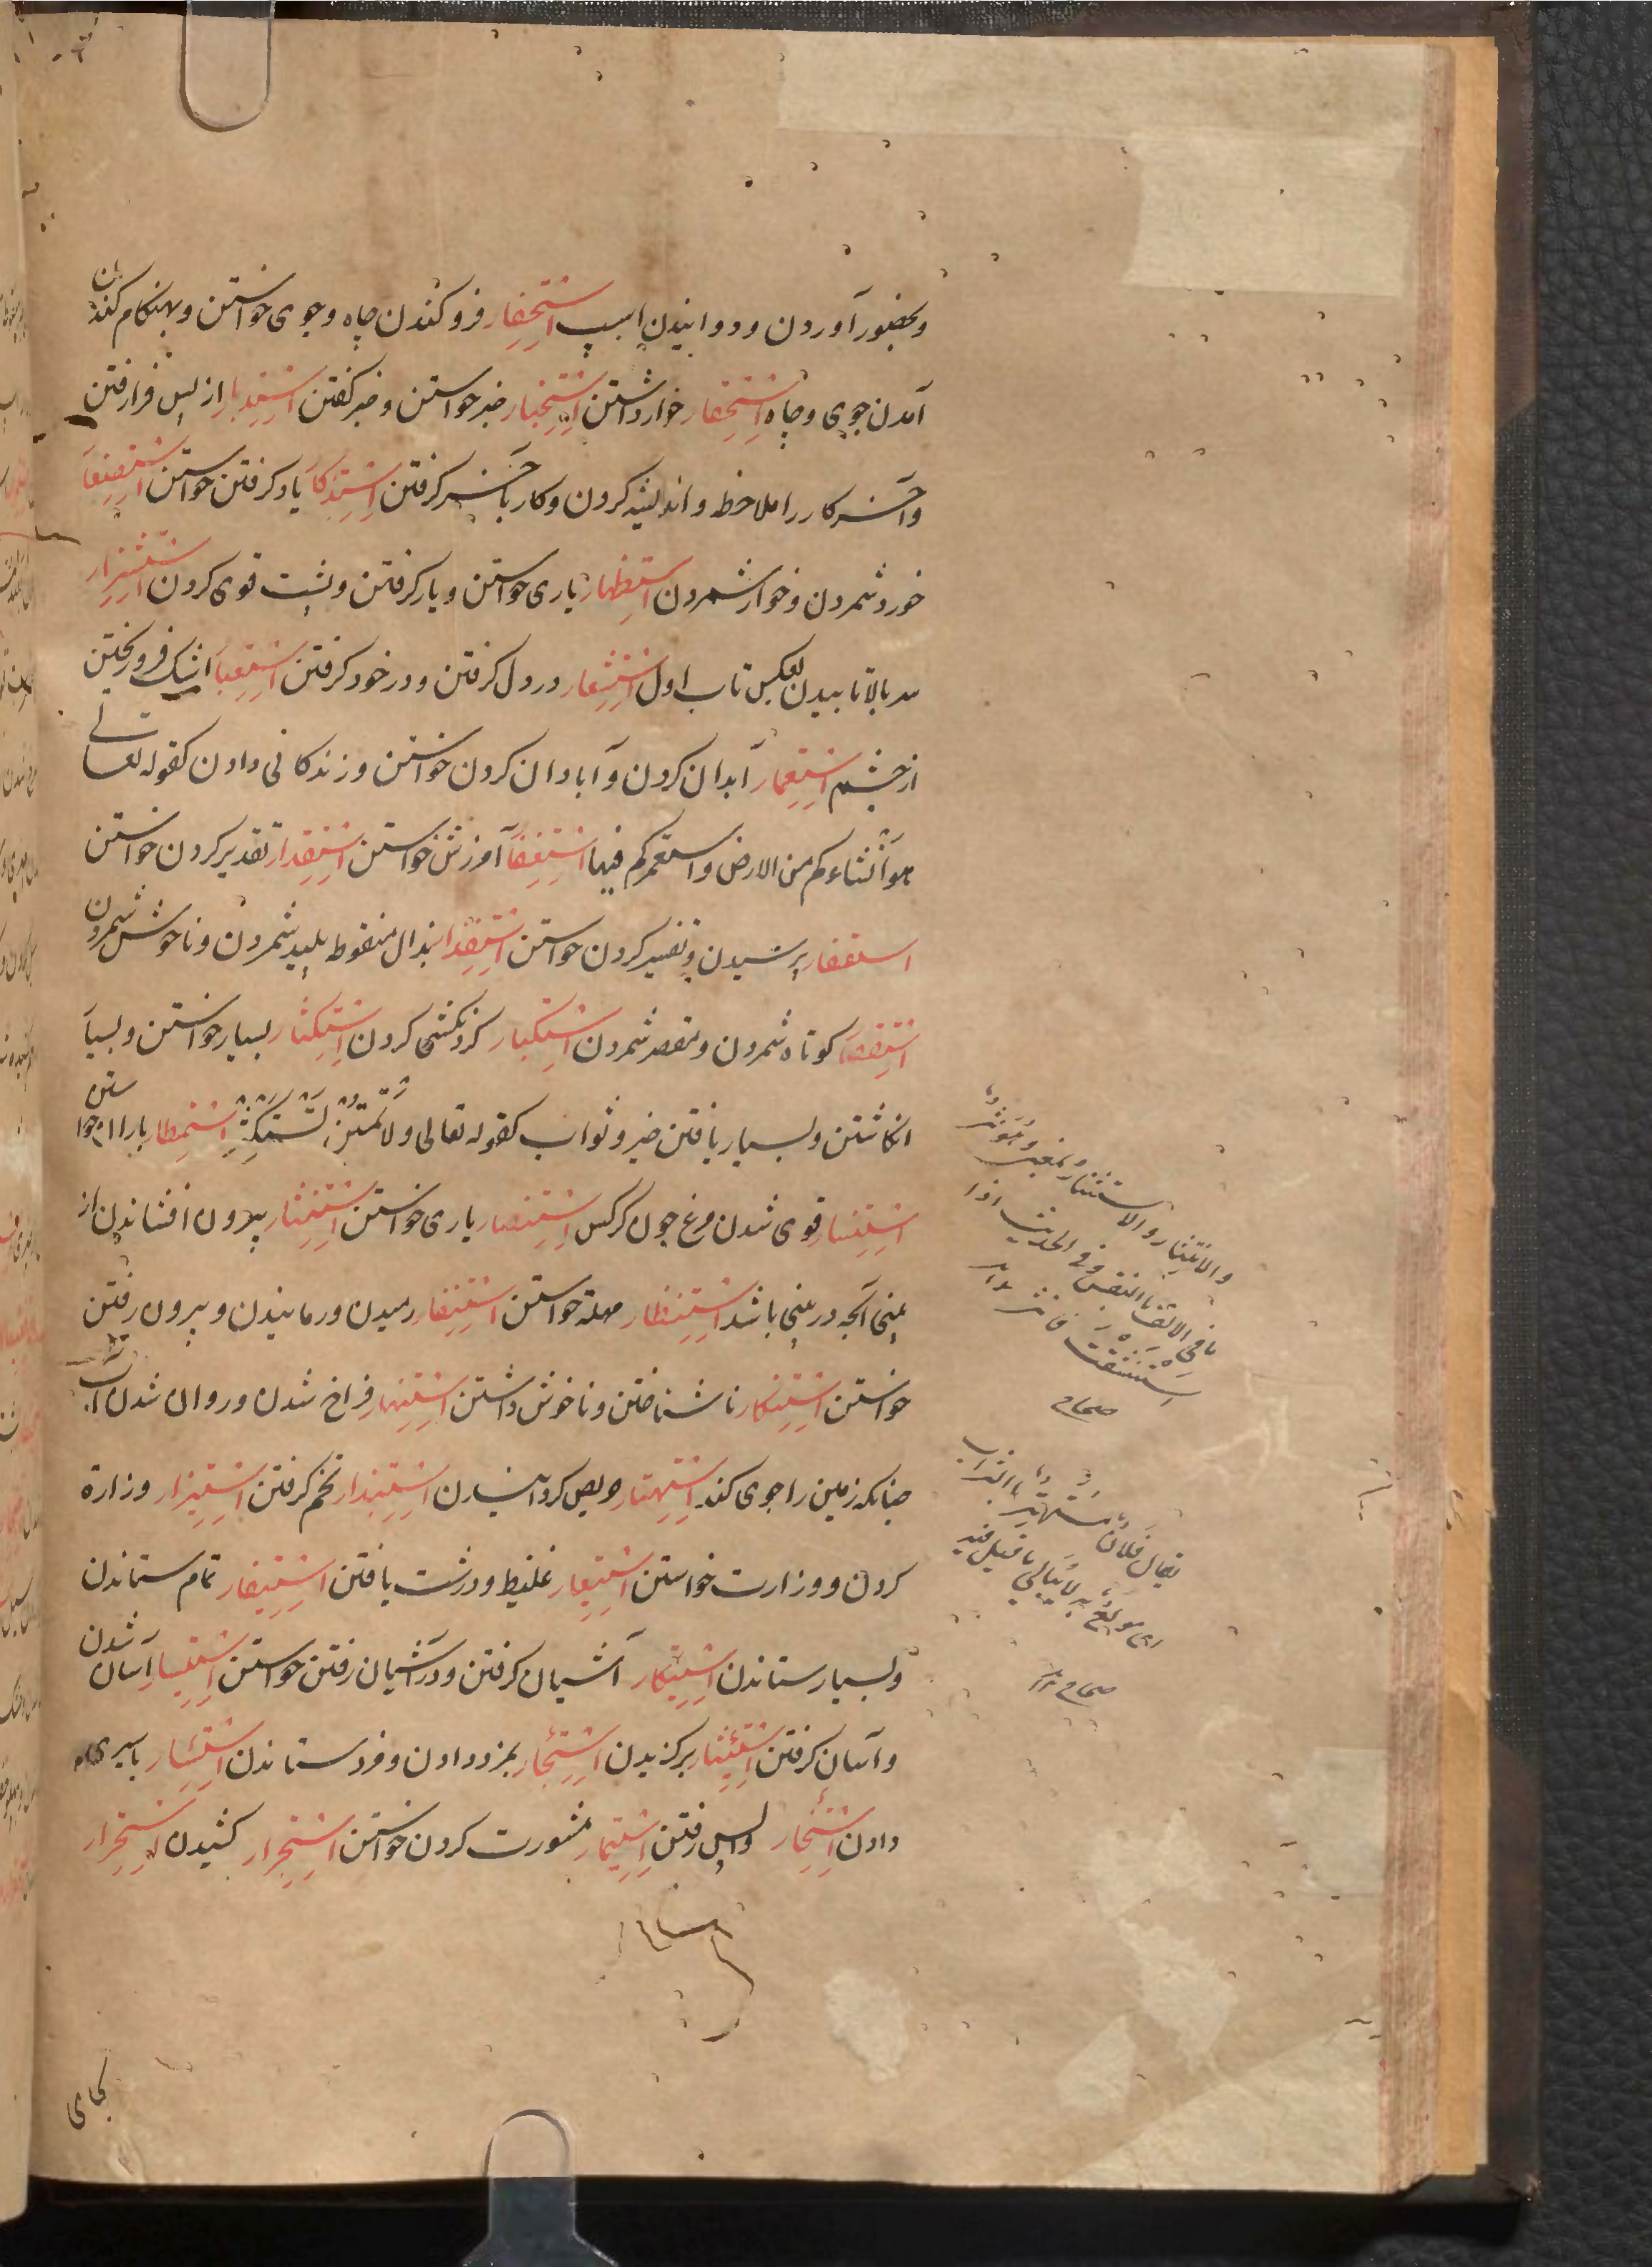 وبحضور آوردن ودوانیدن اسپ اِسْتِحْفار فروکندن چاه وجوی خواستن وبهنکام کندن
آمدن جوی وچاه اِسْتِحْقار خوار داشتن اِسْتِخْبار خبر خواستن وخبر کفتن اِسْتِدْبار از پس فرا رفتن
وآخر کار را ملاحظه واندیشه کردن وکار بآخر کرفتن اِسْتِذْکا یاد کرفتن خواستن اِسْتِصْغا
خورد شمردن وخوار شمردن استظهار یاری خواستن ویار کرفتن وپشت قوی کردن اِسْتِشْزار
سر بالا تابیدن بعکس تاب اول اِسْتِشْعار در دل کرفتن ودر خود کرفتن اِسْتِعْبا اشک فرو ریختن
از چشم اِسْتِعْمار آبدان کردن وآبادان کردن خواستن وزندکانی دادن کقوله تعالی
هو اَنْشاءکم من الارض واستعمرکم فیها اِسْتِغْفا آمرزش خواستن اِسْتِقْدار تقدیر کردن خواستن
استفسار پرسیدن وتفسیر کردن خواستن اِسْتِقْذا بذال منقوط پلید شمردن وناخوش شمردن
اِسْتِقْصا کوتاه شمردن ومقصر شمردن اِسْتِکْبار کردنکشی کردن اِسْتِکْثار بسیار خواستن وبسیا
انکاشتن وبسیار یافتن خیر وثواب کقوله تعالی ولا تَمْنُنْ تَسْتَکْثِرُ اِسْتِمْطار باران خواستن
اِسْتِنْسار قوی شدن مرغ چون کرکس اِسْتِنْصار یاری خواستن اِسْتِنْثار بیرون افشاندن از
بینی آنچه در بینی باشد اِسْتِنْظار مهلة خواستن اِسْتِنْفار رمیدن ورمانیدن وبیرون رفتن
خواستن اِسْتِنْکار ناشناختن وناخوش داشتن اِسْتِنْهار فراخ شدن وروان شدن آب
چنانکه زمین را جوی کند اِسْتِهْتار حریص کردانیدن اِسْتِبْذار تخم کرفتن اِسْتِیْزار وزارة
کردن ووزارت خواستن اِسْتِیْعار غلیظ ودرشت یافتن اِسْتِیْفار تمام ستاندن
وبسیار ستاندن اِسْتِیْکار آشیان کرفتن ودر آشیان رفتن خواستن اِسْتِیْسار آسان شدن
وآسان کرفتن اِسْتِئْثار برکزیدن اِسْتِئْجار بمزد دادن ومزد ستاندن اِسْتِئْسار باسیری
دادن اِسْتِئْخار واپس رفتن اِسْتِیْمار مشورت کردن خواستن اِسْتِجْرار کشیدن اِسْتِحْرار
والانتثار والاستنثار بمعنی وهو نثر
ما فی الانف بالنفس وفی الحدیث اذا
استنشقت فانثر
صحاح
یقال فلان مستهتر بالشراب
ای مولع به لا یبالی ما قیل فیه
صحاح
بجای